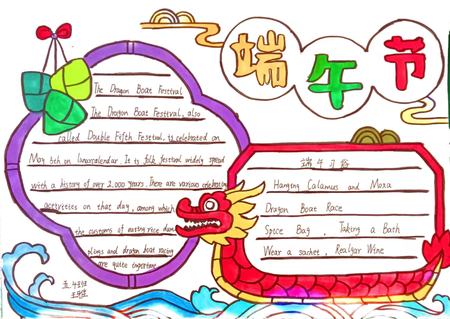 端午节
The Dragon Boat Festival
The Dragon Boat Festival, also
called Double Fifth Festival, is celebrated on
May 5th on lunarcalendar. It is folk festival widely spread
with a history of over 2,000 years. There are various celebration
activities on that day, among which
the customs of eating rice dum
plings and dragon boat racing
are quite important
端午习俗
Hanging Calamus and Moxa
Dragon Boat Race
Spice Bag, Taking a Bath
Wear a sachet, Realgar Wine